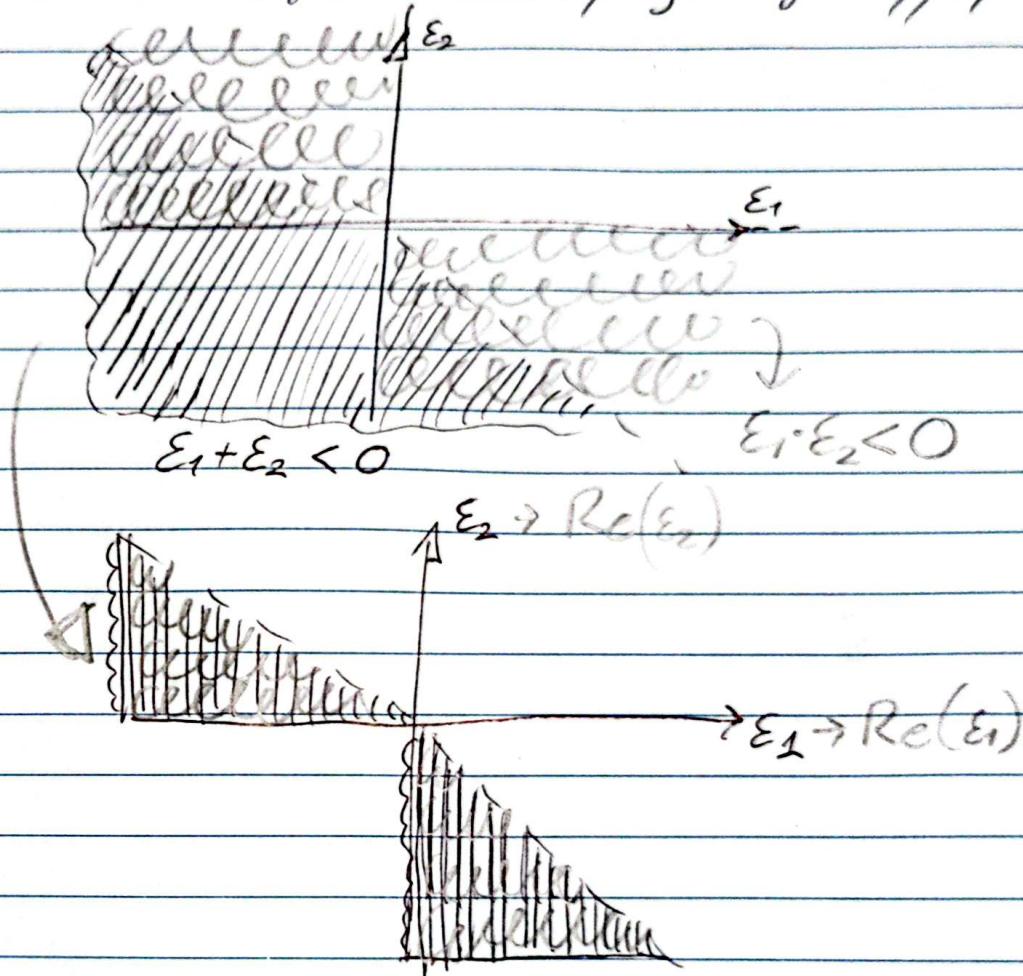 ε₂
ε₁
ε₁+ε₂ < 0
ε₁·ε₂ < 0
ε₂ → Re(ε₂)
ε₁ → Re(ε₁)